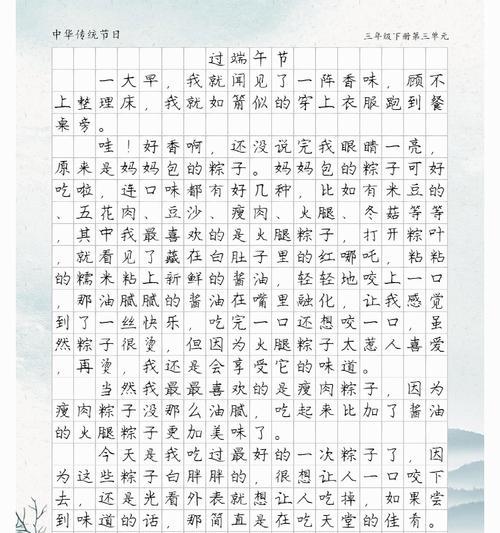 中华传统节日
三年级下册第三单元
过端午节
一大早，我就闻见了一阵香味，顾不
上整理床，我就如箭似的穿上衣服跑到餐
桌旁。
哇！好香啊，还没说完我眼睛一亮，
原来是妈妈包的粽子。妈妈包的粽子可好
吃啦，连口味都有好几种，比如有米豆的
、五花肉、豆沙、瘦肉、火腿、冬菇等等
，其中我最喜欢的是火腿粽子，打开粽叶
，就看见了藏在白肚子里的红哪吒，粘粘
的糯米粘上新鲜的酱油，轻轻地咬上一口
，那油腻腻的酱油在嘴里融化，让我感觉
到了一丝快乐，吃完一口还想咬一口，虽
然粽子很烫，但因为火腿粽子太惹人喜爱
，再烫，我还是会享受它的味道。
当然我最最喜欢的是瘦肉粽子，因为
瘦肉粽子没那么油腻，吃起来比加了酱油
的火腿粽子更加美味了。
今天是我吃过最好的一次粽子了，因
为这些粽子白胖胖的，很想让人一口咬下
去，还是光看外表就想让人吃掉，如果尝
到味道的话，那简直是在吃天堂的佳肴。